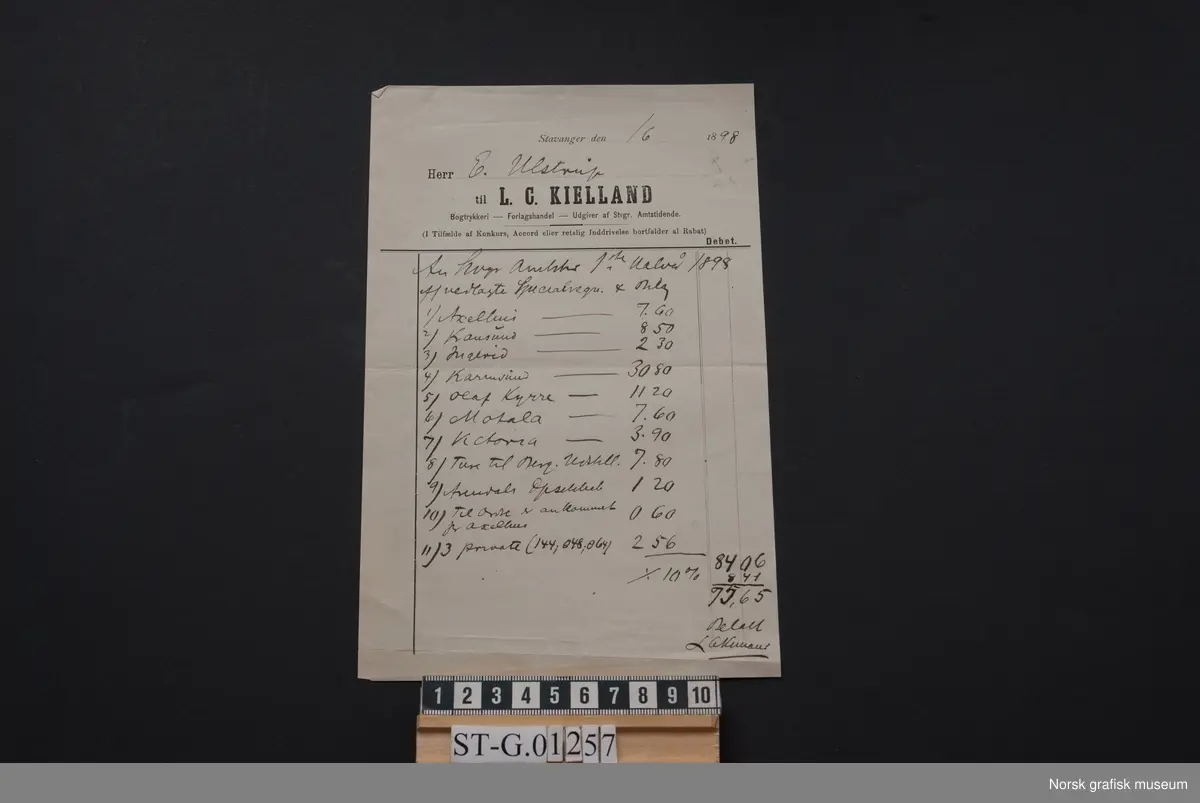 Stavanger den 1/6 1898
Herr E. Ulstrup
til L. C. KIELLAND
Bogtrykkeri — Forlagshandel — Udgiver af Stvgr. Amtstidende.
(I Tilfælde af Konkurs, Accord eller retslig Inddrivelse bortfalder al Rabat)
Debet.
1ste Halvå 1898
Af vedlagte Specialregn.
1) Axelhus — 7.60
2) — 8 50
3) Ingerid — 2 30
4) Karmsund — 30 80
5) Olaf Kyrre — 11 20
6) Motala — 7.60
7) Victoria — 3.90
8) Ture til Berg. Udstill. 7.80
9) Arendals 1 20
10) Til Ordre & ankommet 0 60
pr Axelhus
11) 3 private (144, 048, 064) 2 56
84 06
10% 8 41
75,65
Betalt
1 2 3 4 5 6 7 8 9 10
ST-G.01257
Norsk grafisk museum